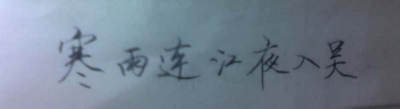 寒雨连江夜入吴